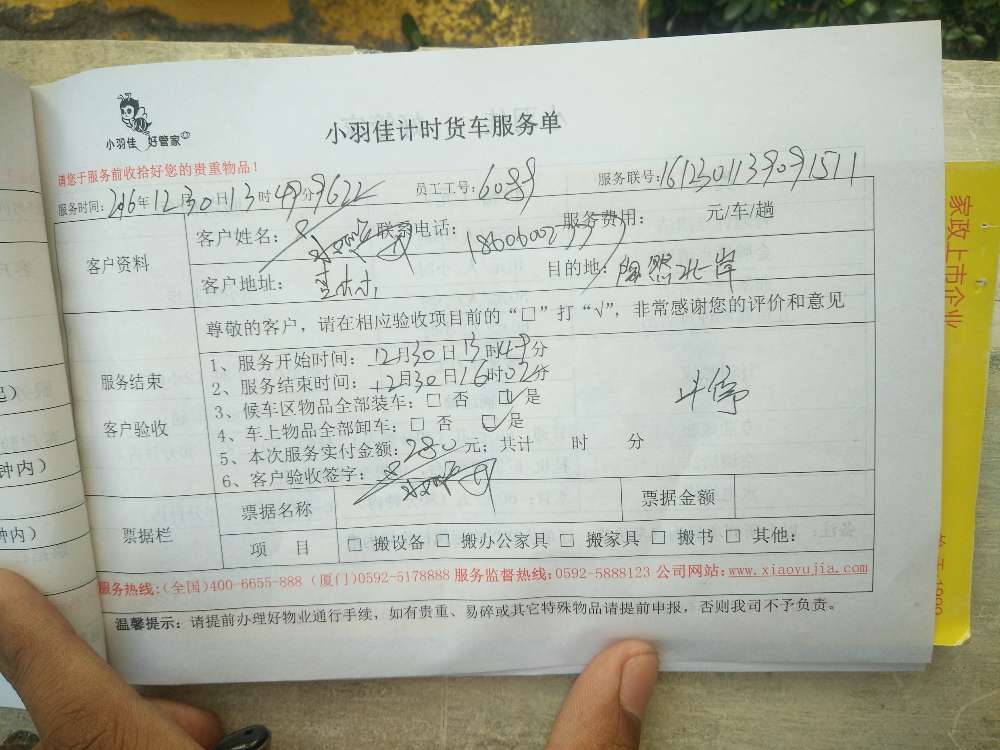 小羽佳 好管家
小羽佳计时货车服务单
请您于服务前收拾好您的贵重物品！
服务时间：2016年12月30日13时49分 员工工号：6088 服务联号：
客户资料
客户姓名： 联系电话： 服务费用： 元/车/趟
客户地址： 目的地：
尊敬的客户，请在相应验收项目前的“□”打“√”，非常感谢您的评价和意见
服务结束
客户验收
1、服务开始时间：12月30日13时49分
2、服务结束时间：12月30日16时02分
3、候车区物品全部装车：□ 否 ☑ 是
4、车上物品全部卸车：□ 否 ☑ 是
5、本次服务实付金额：280元；共计 时 分
6、客户验收签字：
票据栏
票据名称 票据金额
项 目 □ 搬设备 □ 搬办公家具 □ 搬家具 □ 搬书 □ 其他：
服务热线：(全国)400-6655-888 (厦门)0592-5178888 服务监督热线：0592-5888123 公司网站：www.xiaoyujia.com
温馨提示：请提前办理好物业通行手续，如有贵重、易碎或其它特殊物品请提前申报，否则我司不予负责。
家政上市企业
钟内）
钟内）